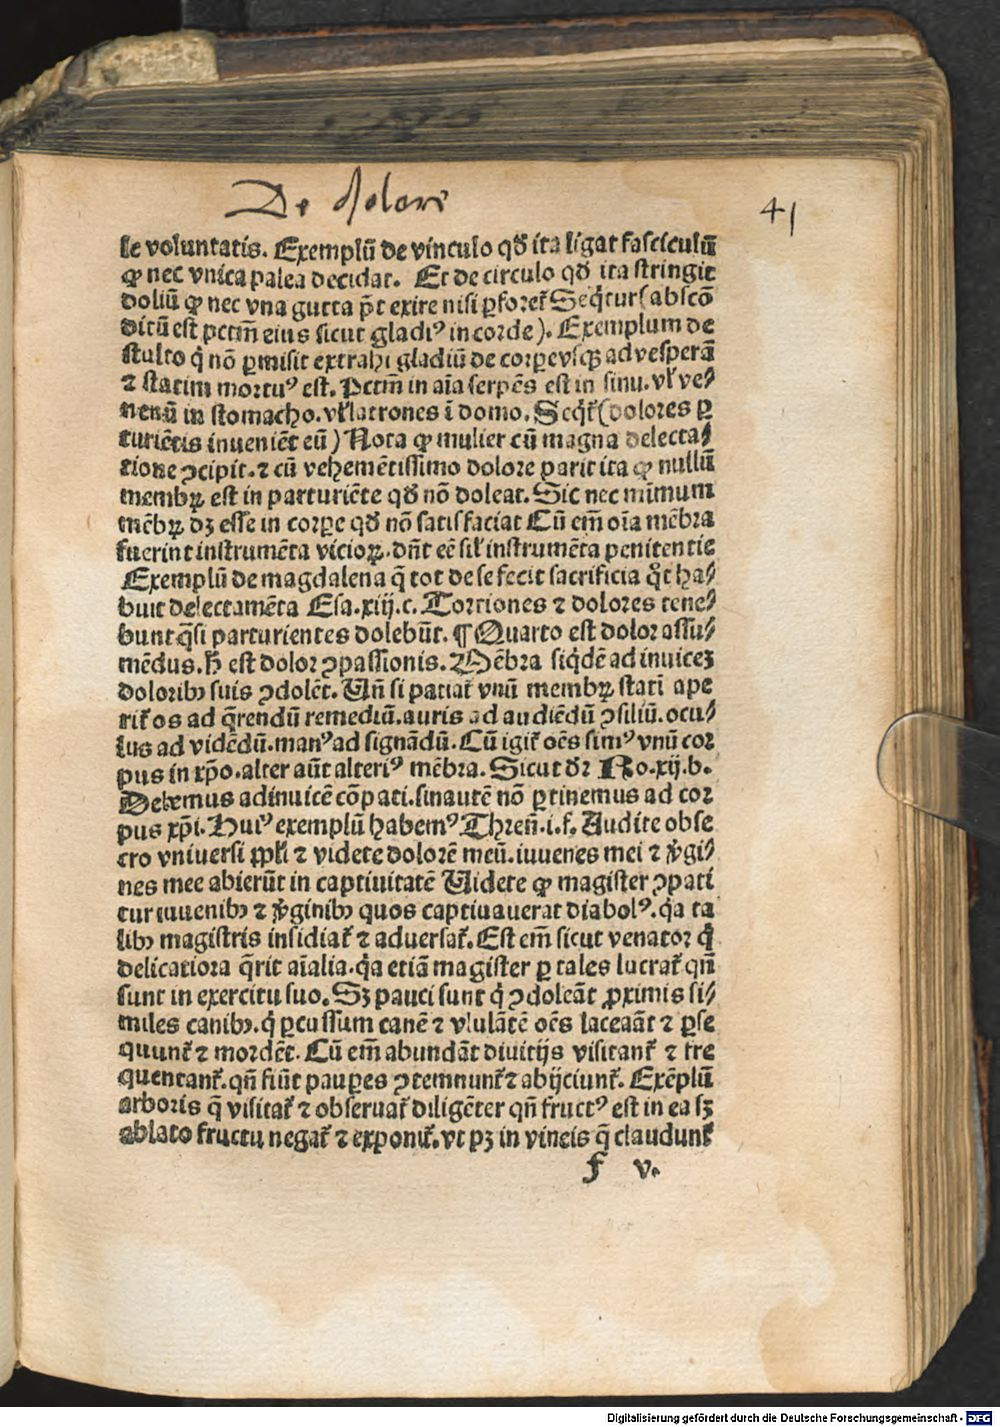 De dolore
41
le voluntatis. Exemplū de vinculo qđ ita ligat fasciculū
ꝙ nec vnica palea decidat. Et de circulo qđ ita stringit
doliū ꝙ nec vna gutta p̄t exire nisi ꝑforet᷑ Seq̇tur (abscō
ditū est pctm̄ eius sicut gladiꝰ in corde). Exemplum de
stulto q̇ nō ꝑmisit extrahi gladiū de corꝑe vsqꝫ ad vesperā
⁊ statim mortuꝰ est. Pctm̄ in aīa serpēs est in sinu. vl̓ ve⸗
nenū in stomacho. vl̓ latrones ī domo. Seq̇t᷑ (dolores ꝑ
turiētis inueniēt eū) Nota ꝙ mulier cū magna delecta⸗
tione ꝯcipit. ⁊ cū vehemētissimo dolore parit ita ꝙ nullū
membrꝝ est in parturiēte qđ nō doleat. Sic nec minimum
mēbrꝝ dꝫ esse in corꝑe qđ nō satisfaciat Cū em̄ oīa mēbra
fuerint instrumēta vicioꝝ. dn̄t eē sil̓ instrumēta penitentie
Exemplū de magdalena q̄ tot de se fecit sacrificia q̊t ha⸗
buit delectamēta Esa. xiij. c. Tortiones ⁊ dolores tene⸗
bunt q̄si parturientes dolebūt. ¶ Quarto est dolor assu⸗
mēdus. h̄ est dolor ꝯpassionis. Mēbra siq̇dē ad inuiceꝫ
doloribꝫ suis ꝯdolēt. Un̄ si patiat᷑ vnū membrꝝ statī ape
rit᷑ os ad q̄rendū remediū. auris ad audiēdū ꝯsiliū. ocu⸗
lus ad vidēdū. manꝰ ad signādū. Cū igit᷑ oēs simꝰ vnū cor
pus in xp̄o. alter aūt alteriꝰ mēbra. Sicut dr̄ Ro. xij. b.
Debemus adinuicē cōpati. sinautē nō ꝑtinemus ad cor
pus xp̄i. Huiꝰ exemplū habemꝰ Thren̄. i. f. Audite obse
cro vniuersi ppl̓i ⁊ videte dolorē meū. iuuenes mei ⁊ v̓gi⸗
nes mee abierūt in captiuitatē Uidete ꝙ magister ꝯpati
tur iuuenibꝫ ⁊ v̓ginibꝫ quos captiuauerat diabolꝰ. q̇a ta
libꝫ magistris insidiat᷑ ⁊ aduersat᷑. Est em̄ sicut venator q̇
delicatiora q̄rit aīalia. q̇a etiā magister ꝑ tales lucrat᷑ qn̄
sunt in exercitu suo. Sꝫ pauci sunt q̇ ꝯdoleāt ꝓximis si⸗
miles canibꝫ. q̇ ꝑcussum canē ⁊ vlulātē oēs laceāt ⁊ ꝑse
quunt᷑ ⁊ mordēt. Cū em̄ abundāt diuitijs visitant᷑ ⁊ fre
quentant᷑. qn̄ fiūt pauꝑes ꝯtemnunt᷑ ⁊ abijciunt᷑. Exēplū
arboris q̄ visitat᷑ ⁊ obseruat᷑ diligēter qn̄ fructꝰ est in ea sꝫ
ablato fructu negat᷑ ⁊ exponit᷑. vt pꝫ in vineis q̄ claudunt᷑
f v.
Digitalisierung gefördert durch die Deutsche Forschungsgemeinschaft - DFG